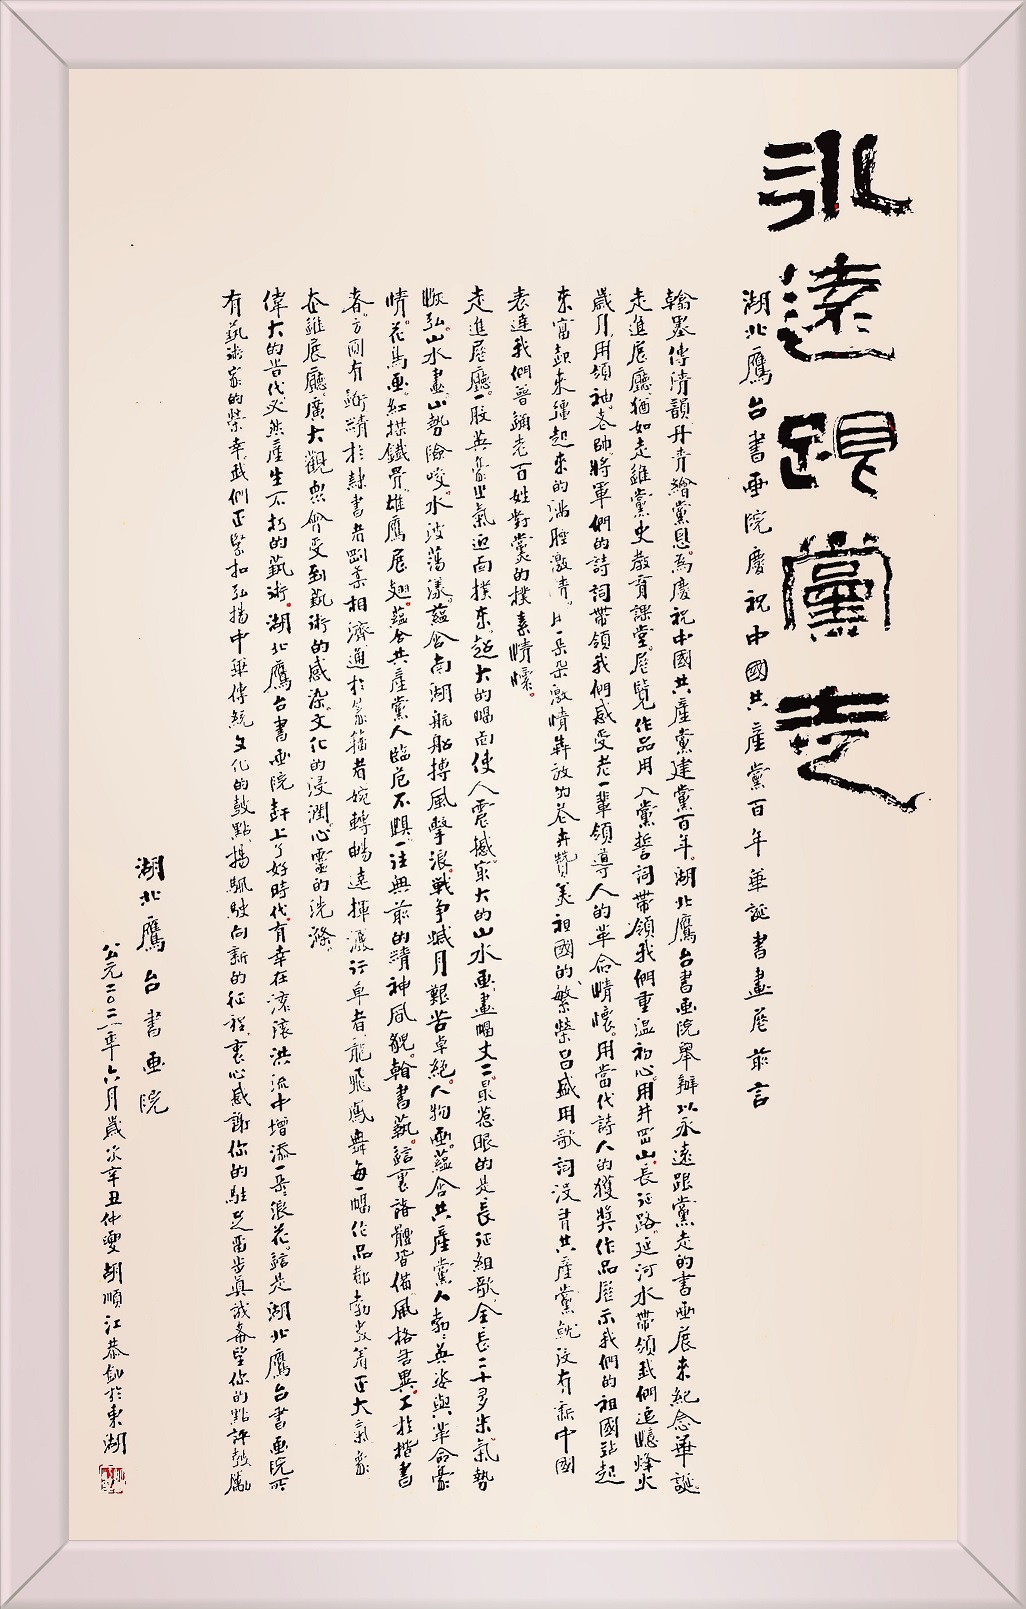 永遠跟黨走
湖北鷹台書画院慶祝中國共產黨百年華誕書畫展前言
翰墨傳清韻丹青繪黨恩為慶祝中國共產黨建黨百年湖北鷹台書画院舉辦以永遠跟黨走的書画展來紀念華誕
走進展廳猶如走進黨史教育課堂展覽作品用入黨誓詞帶領我們重温初心用井岡山長征路延河水帶領我們追憶烽火
歲月用領袖老帥將軍們的詩詞帶領我們感受老一輩領導人的革命情懷用當代詩人的獲獎作品展示我們的祖國站起
來富起來強起來的滿腔激情用一朵朵激情奔放的花卉贊美祖國的繁榮昌盛用歌詞没有共產黨就没有新中國
表達我們普通老百姓對黨的樸素情懷
走進展廳一股英豪之氣迎面撲來超大的幅面使人震撼最大的山水画畫幅丈二最惹眼的是長征組歌全長二十多米氣勢
恢弘山水畫山勢險峻水波蕩漾蘊含南湖航船搏風擊浪戰爭歲月艱苦卓絕人物画蘊含共產黨人勃勃英姿與革命豪
情花鳥画紅梅鐵骨雄鷹展翅蘊含共產黨人臨危不懼一往無前的精神風貌翰書藝這裏諸體皆備風格各異工於楷書
者方剛有餘精於隸書者剛柔相濟通於篆籀者婉轉暢達揮灑行草者龍飛鳳舞每一幅作品都勃發着正大氣象
在進展廳廣大觀衆會受到藝術的感染文化的浸潤心靈的洗滌
偉大的時代必然產生不朽的藝術湖北鷹台書画院趕上了好時代有幸在滚滚洪流中增添一朵浪花這是湖北鷹台書画院所
有藝術家的榮幸我們正緊扣弘揚中華傳統文化的鼓點揚帆駛向新的征程衷心感謝你的駐足留步真誠希望你的點評鼓勵
湖北鷹台書画院
公元二〇二一年六月歲次辛丑仲夏胡順江恭書於東湖